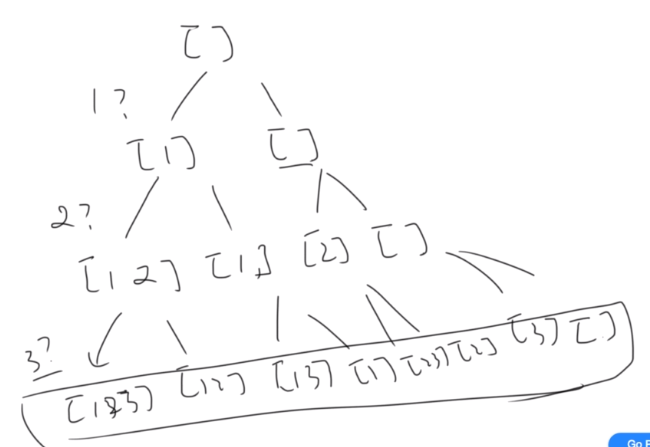 [ ]
1?
[1] [ ]
2?
[1 2] [1] [2] [ ]
3?
[123] [12] [13] [1] [23] [2] [3] [ ]
Go